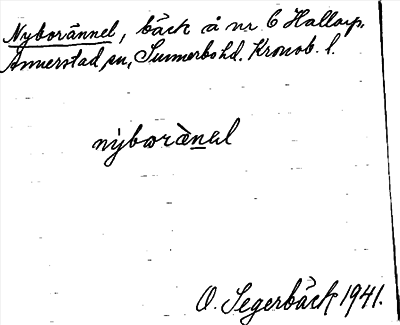 Nyborännel, bäck å nr 6 Hallarp,
Annerstad sn, Sunnerbo hd. Kronob. l.
nỳbωrὰnəl
O. Segerbäck 1941.